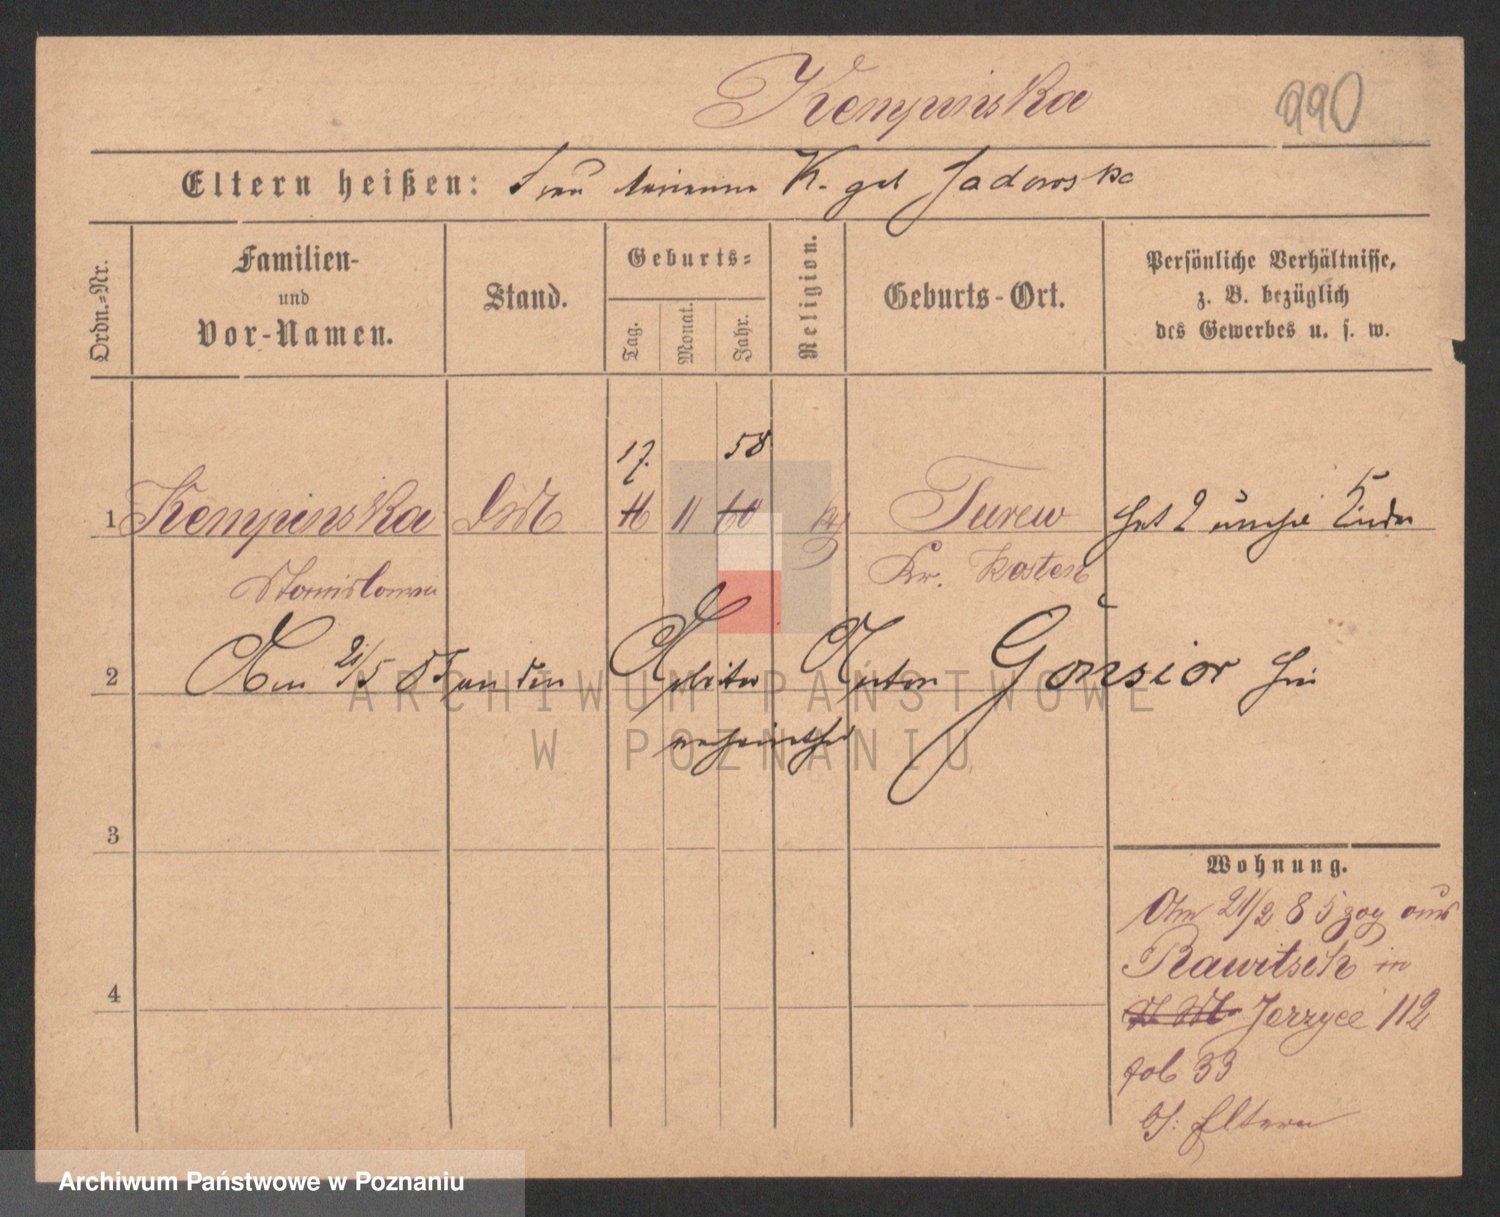 Kempinska
990
Eltern heißen: Frau Marianna K. geb Jadowska
Ordn.-Nr.
Familien-
und
Vor-Namen.
Stand.
Geburts-
Tag.
Monat.
Jahr.
Religion.
Geburts-Ort.
Persönliche Verhältnisse,
z. B. bezüglich
des Gewerbes u. s. w.
17. 58
1 Kempinska 11 60 Turew hat 2 unehel Kinder
Stanislawa Kr. Kosten
2 Am 21/5 den Arbeiter Anton Gonsior hier
3
Wohnung.
Am 21/2 85 zog aus
Rawitsch in
4
Jerzyce 112
fol 33
b/: Eltern
ARCHIWUM PAŃSTWOWE
W POZNANIU
Archiwum Państwowe w Poznaniu